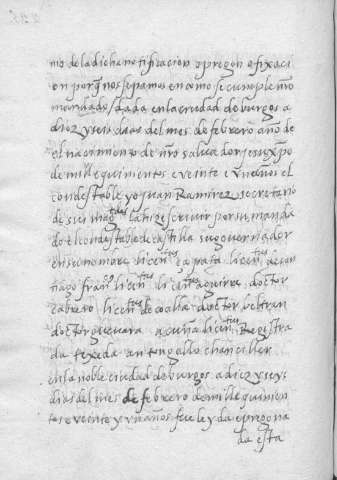 mo de la dicha notificacion o pregon o fixaci
on porq̃ nos sepamos en como se cumple nr̃o
mandado / dada en la ciudad de burgos a
diez y seis dias del mes de febrero año de
el nacimiento de nr̃o saluador jesuxp̃o
de mill e quinientos e veinte e vn años el
condestable yo juan Ramirez secretario
de sus mag^des la fize escriuir por su manda
do el condestable de castilla su gouernador
en su nombre licen^tus çapata licen^tus de san
tiago fran^co licen^tus li cen^tus aguirre doctor
cabrero licen^tus de coalla doctor beltran
doctor gueuara acuña licen^tus Registra
da texeda anton gallo chanciller
en la noble ciudad de burgos a diez y seys
dias del mes de febrero de mill e quinien
tos e veynte y vn años fue leyda e pregona
da esta